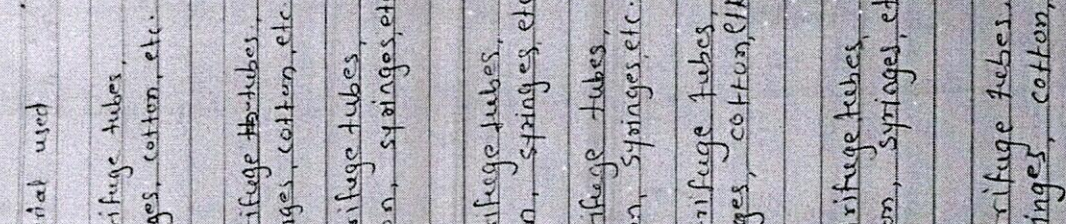 rial used
rifuge tubes,
ges, cotton, etc.
ifuge tubes,
ges, cotton, etc
rifuge tubes,
on, syringes, etc
ifuge tubes,
n, syringes, etc
ifuge tubes,
n, syringes, etc.
rifuge tubes
ges, cotton,
rifuge tubes,
on, syringes, et
rifuge tubes,
inges, cotton,